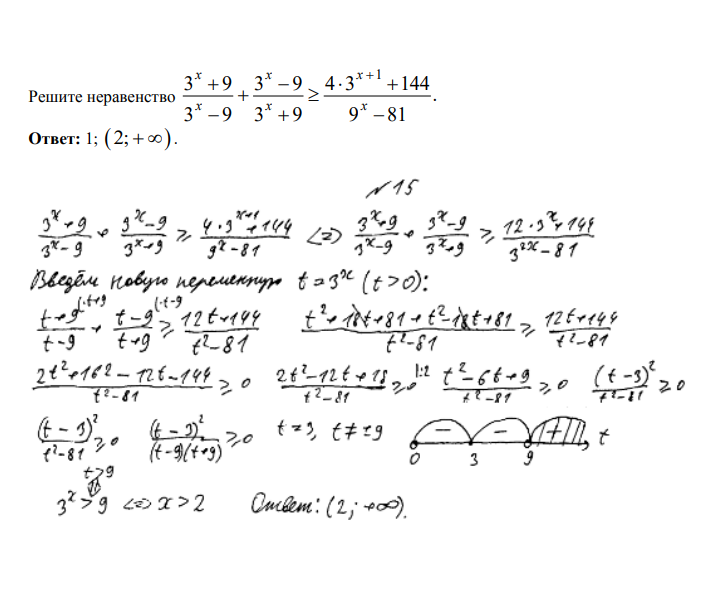 Решите неравенство (3^x + 9)/(3^x − 9) + (3^x − 9)/(3^x + 9) ≥ (4·3^(x+1) + 144)/(9^x − 81).
Ответ: 1; (2; +∞).
№15
(3^x + 9)/(3^x − 9) + (3^x − 9)/(3^x + 9) ≥ (4·3^(x+1) + 144)/(9^x − 81) <=> (3^x + 9)/(3^x − 9) + (3^x − 9)/(3^x + 9) ≥ (12·3^x + 144)/(3^(2x) − 81)
Введём новую переменную t = 3^x (t > 0):
(t + 9)/(t − 9) (·t+9 + (t − 9)/(t + 9) (·t−9 ≥ (12t + 144)/(t² − 81) (t² + 18t + 81 + t² − 18t + 81)/(t² − 81) ≥ (12t + 144)/(t² − 81)
(2t² + 162 − 12t − 144)/(t² − 81) ≥ 0 (2t² − 12t + 18)/(t² − 81) ≥ 0 |:2 (t² − 6t + 9)/(t² − 81) ≥ 0 (t − 3)²/(t² − 81) ≥ 0
(t − 3)²/(t² − 81) ≥ 0 (t − 3)²/((t − 9)(t + 9)) ≥ 0 t = 3, t ≠ ±9 − − + t
0 3 9
t > 9
⇕
3^x > 9 <=> x > 2 Ответ: (2; +∞).